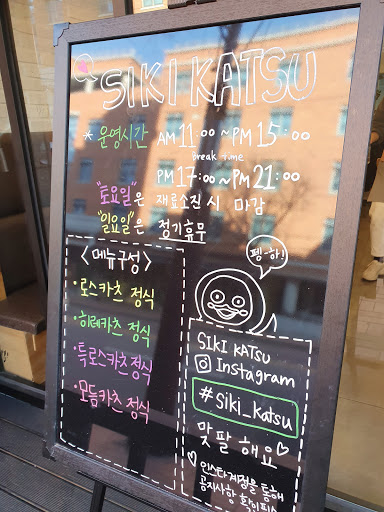 SIKI KATSU
* 운영시간 AM 11:00 ~ PM 15:00
Break time
PM 17:00 ~ PM 21:00
"토요일"은 재료소진 시 마감
"일요일"은 정기휴무
<메뉴구성>
· 로스카츠 정식
· 히레카츠 정식
· 특로스카츠 정식
· 모듬카츠 정식
펭-하!
SIKI KATSU
Instagram
#siki_katsu
맞팔해요♡
♡ 인스타계정을 통해
공지사항